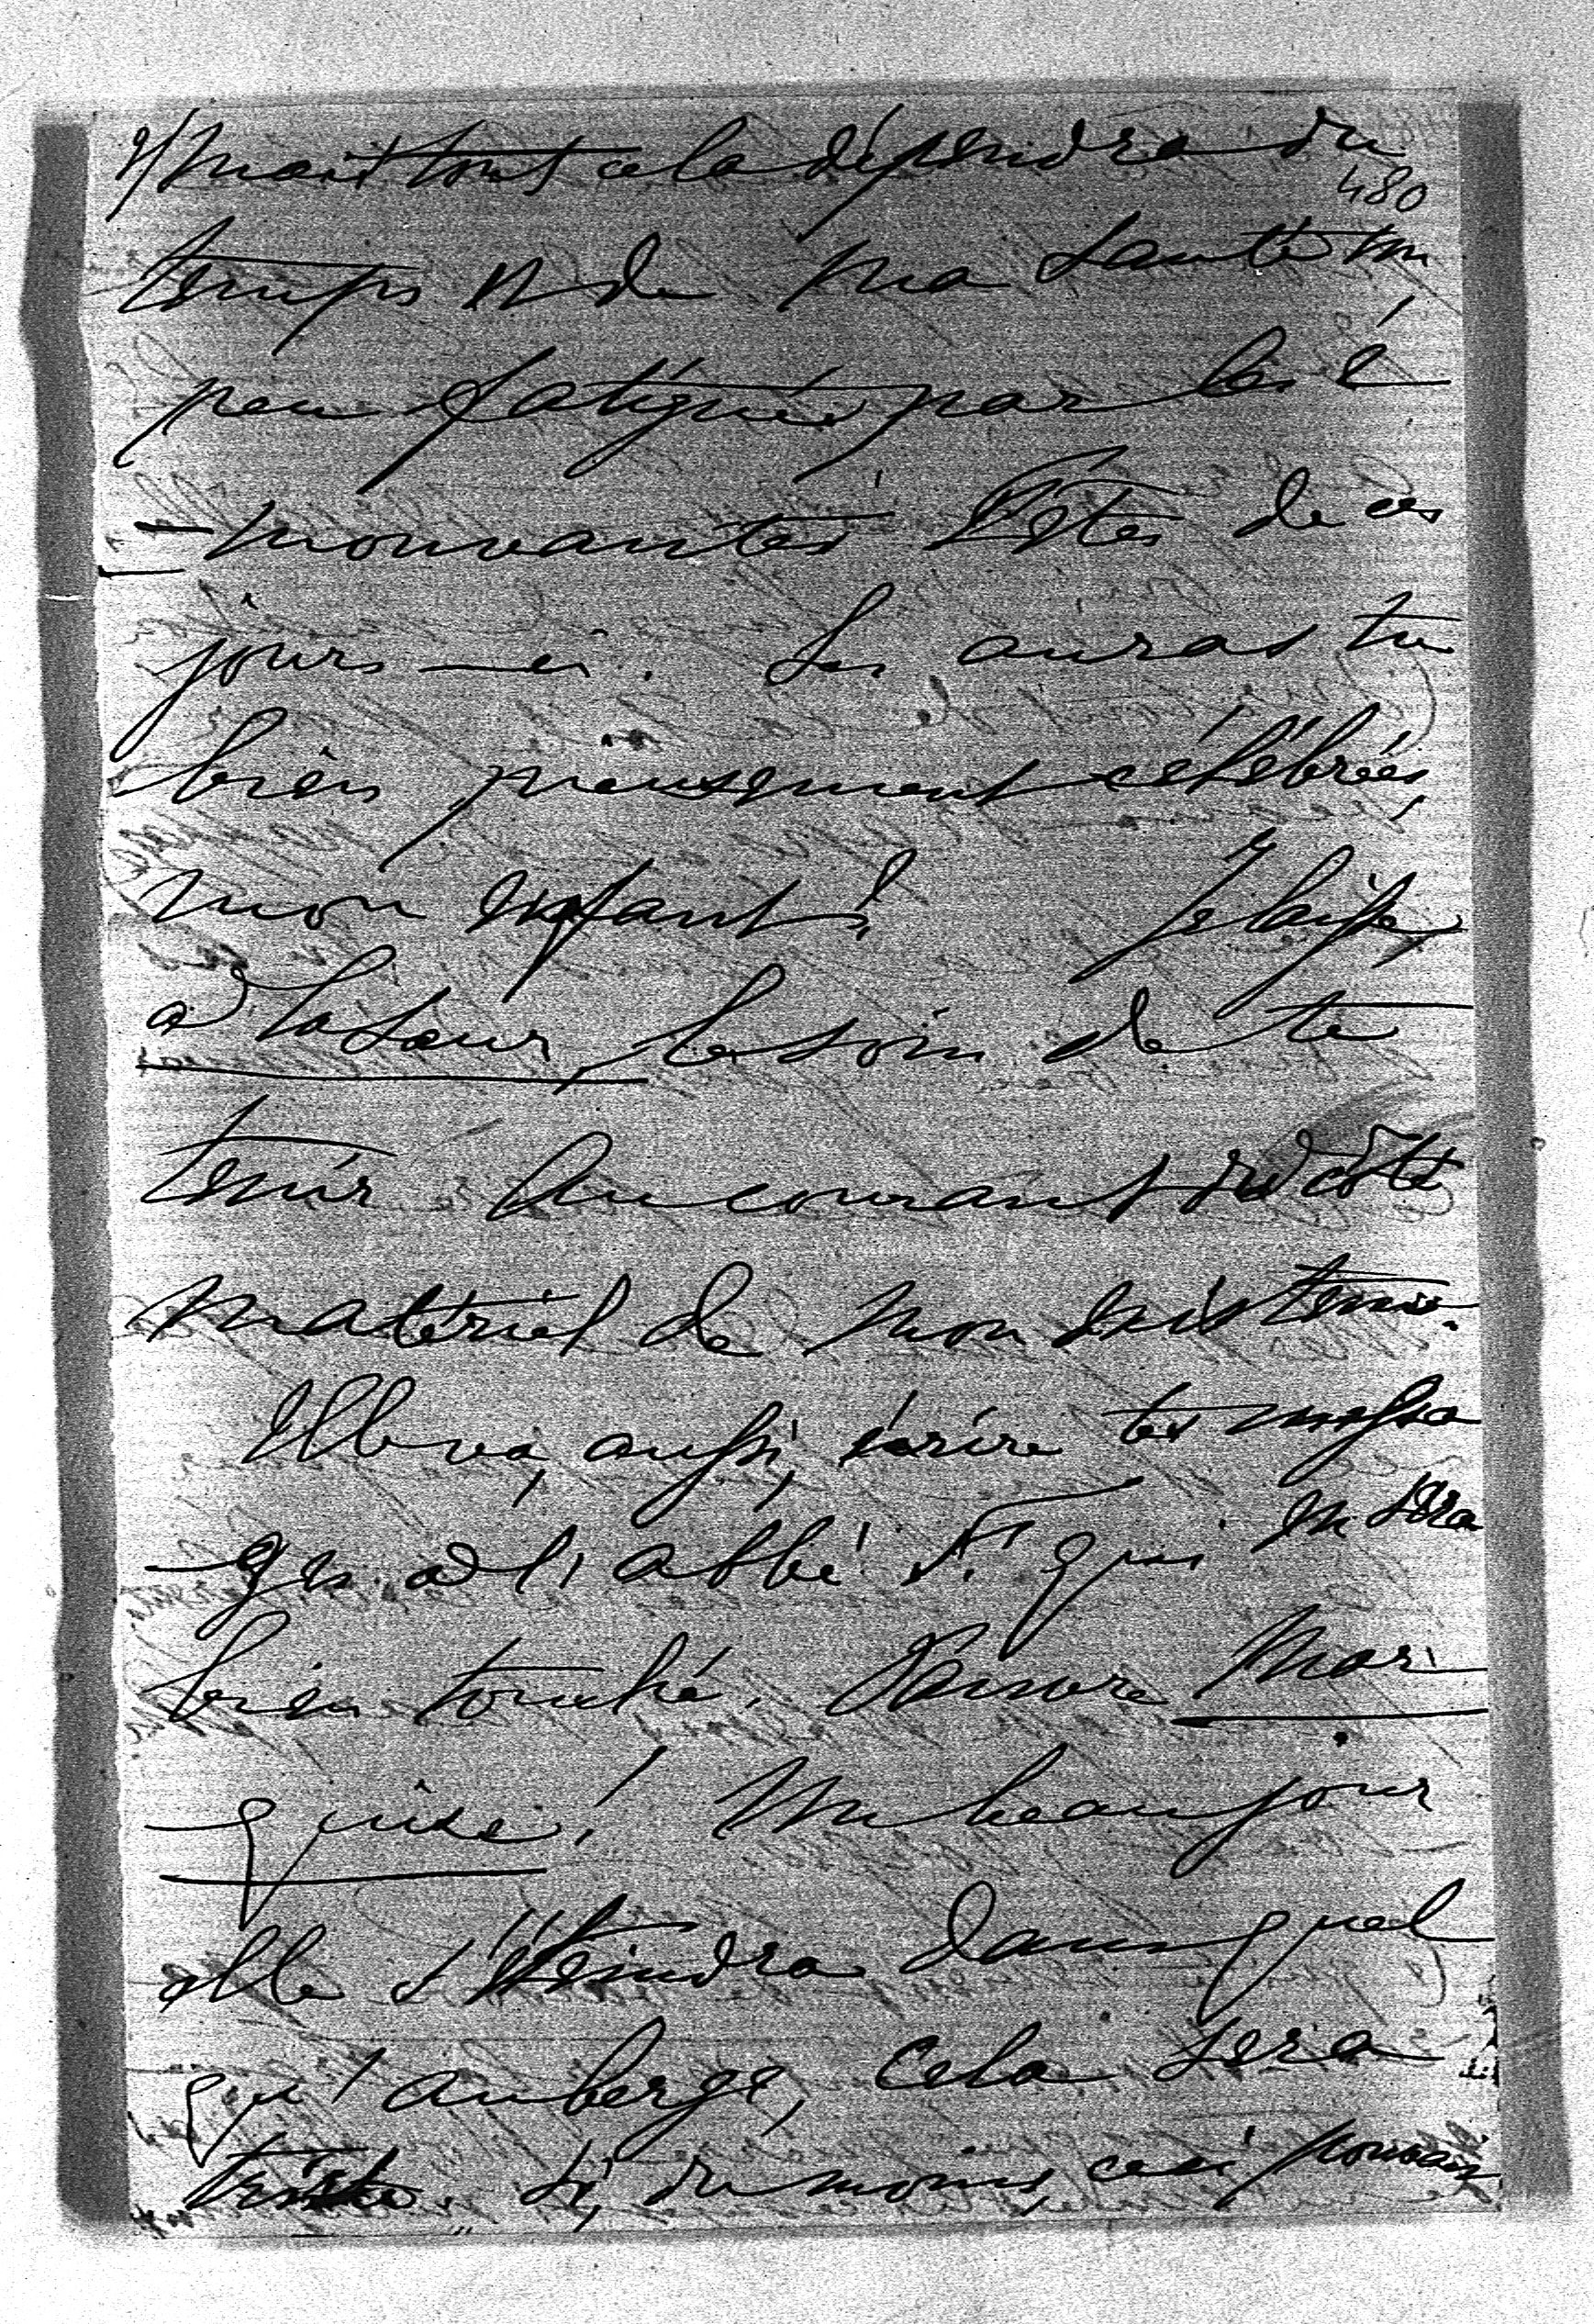 2/ mais tout cela dépendra du
480
temps et de ma santé un
peu fatiguée par les é
-mouvantes Fêtes de ces
jours-ci. Les auras tu
bien pieusement célébrées,
mon enfant? Je laisse
à ta sœur, le soin de te
tenir au courant du côté
matériel de mon existence.
Elle va, aussi, écrire tes messa
-ges à l'abbé F. qui en sera
bien touché. Pauvre Mar
-quise! Un beau jour
elle s'éteindra dans quel
qu'auberge, cela sera
triste. Si, du moins, ceci pouvait